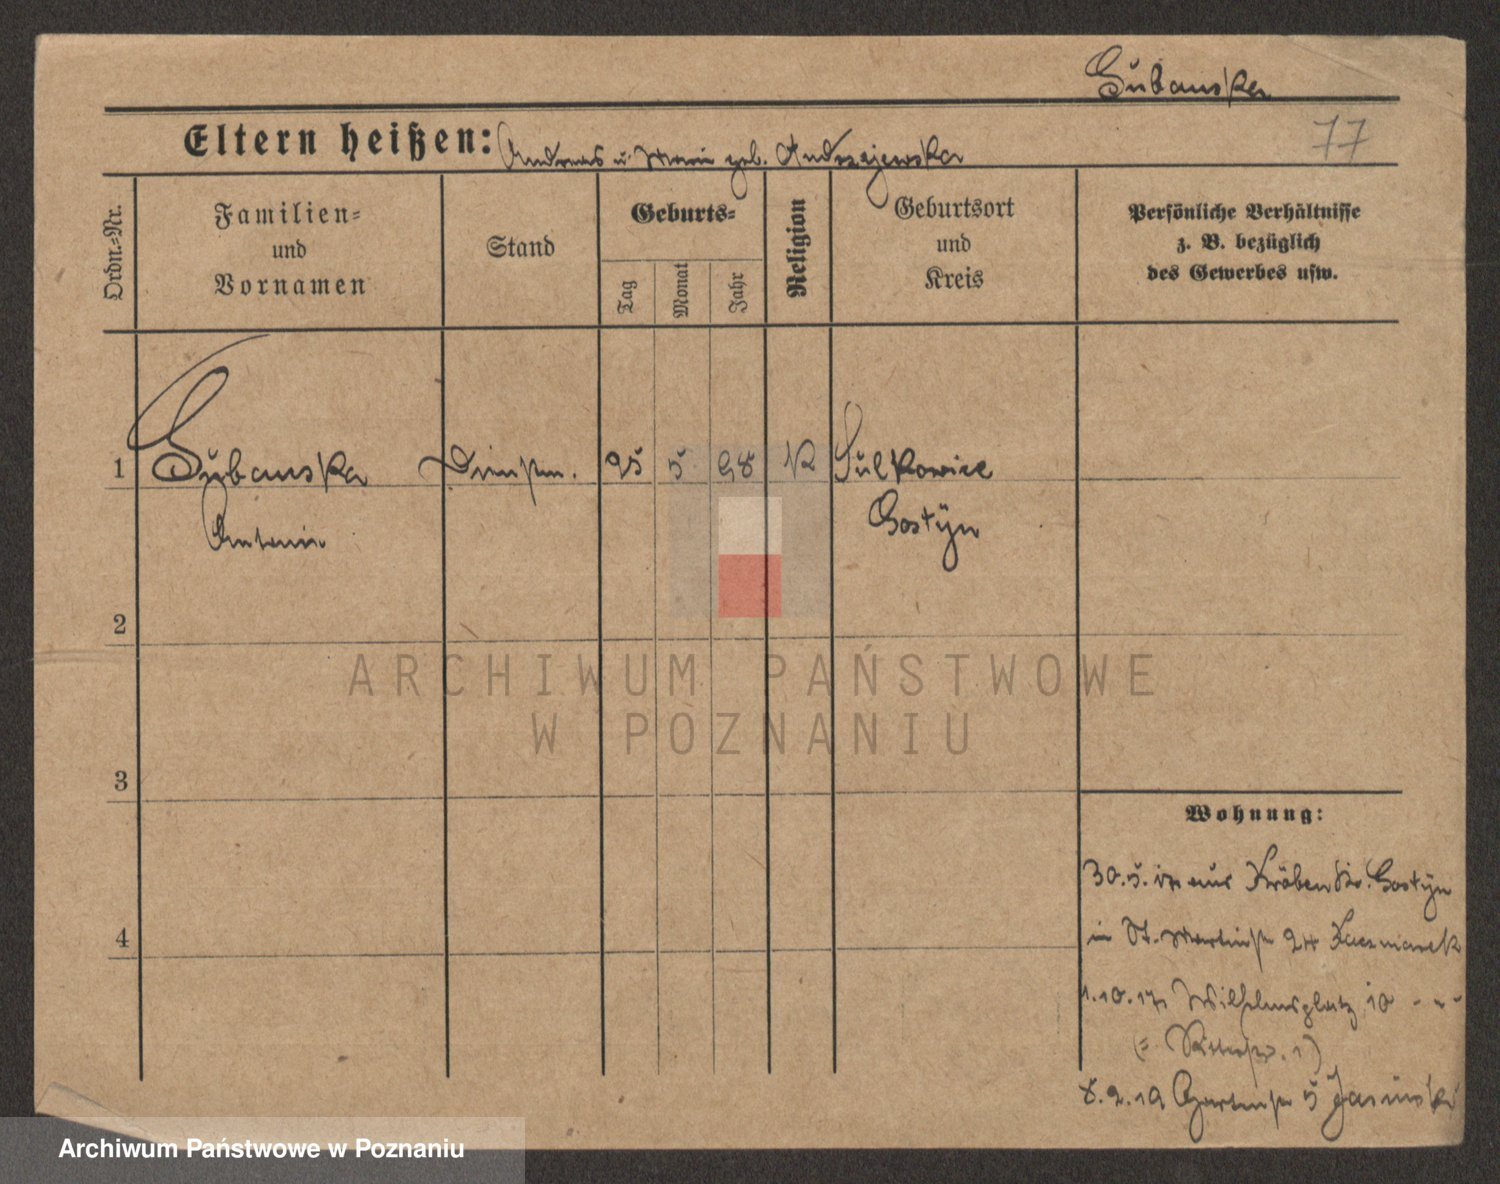 Gubanska
77
Eltern heißen: Andreas u. Marie geb. Andrzejewska
Ordn.-Nr.
Familien-
und
Vornamen
Stand
Geburts-
Tag
Monat
Jahr
Religion
Geburtsort
und
Kreis
Persönliche Verhältnisse
z. B. bezüglich
des Gewerbes usw.
1
Gubanska
Antonie
Dienstm.
25
5
98
K
Sulkowice
Gostÿn
2
3
4
Wohnung:
30.5.17 aus Kröben Kr. Gostÿn
in St. Martinstr 24 Kaczmarek
1.10.17 Wilhelmsplatz 10 - " -
(= Ritterstr. 1)
8.2.19 Gartenstr 5 Jasinski
ARCHIWUM PAŃSTWOWE
W POZNANIU
Archiwum Państwowe w Poznaniu